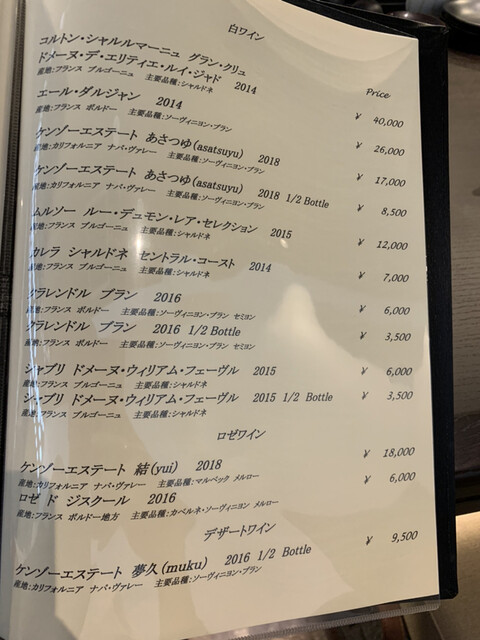 白ワイン
Price
コルトン・シャルルマーニュ グラン・クリュ
ドメーヌ・デ・エリティエ・ルイ・ジャド 2014
産地:フランス ブルゴーニュ 主要品種:シャルドネ
¥ 40,000
エール・ダルジャン 2014
産地:フランス ボルドー 主要品種:ソーヴィニヨン・ブラン
¥ 26,000
ケンゾーエステート あさつゆ(asatsuyu) 2018
産地:カリフォルニア ナパ・ヴァレー 主要品種:ソーヴィニヨン・ブラン
¥ 17,000
ケンゾーエステート あさつゆ(asatsuyu) 2018 1/2 Bottle
産地:カリフォルニア ナパ・ヴァレー 主要品種:ソーヴィニヨン・ブラン
¥ 8,500
ムルソー ルー・デュモン・レア・セレクション 2015
産地:フランス ブルゴーニュ 主要品種:シャルドネ
¥ 12,000
カレラ シャルドネ セントラル・コースト 2014
産地:フランス ブルゴーニュ 主要品種:シャルドネ
¥ 7,000
クラレンドル ブラン 2016
産地:フランス ボルドー 主要品種:ソーヴィニヨン・ブラン セミヨン
¥ 6,000
クラレンドル ブラン 2016 1/2 Bottle
産地:フランス ボルドー 主要品種:ソーヴィニヨン・ブラン セミヨン
¥ 3,500
シャブリ ドメーヌ・ウィリアム・フェーヴル 2015
産地:フランス ブルゴーニュ 主要品種:シャルドネ
¥ 6,000
シャブリ ドメーヌ・ウィリアム・フェーヴル 2015 1/2 Bottle
産地:フランス ブルゴーニュ 主要品種:シャルドネ
¥ 3,500
ロゼワイン
ケンゾーエステート 結(yui) 2018
産地:カリフォルニア ナパ・ヴァレー 主要品種:マルベック メルロー
¥ 18,000
ロゼ ド ジスクール 2016
産地:フランス ボルドー地方 主要品種:カベルネ・ソーヴィニヨン メルロー
¥ 6,000
デザートワイン
ケンゾーエステート 夢久(muku) 2016 1/2 Bottle
産地:カリフォルニア ナパ・ヴァレー 主要品種:ソーヴィニヨン・ブラン
¥ 9,500